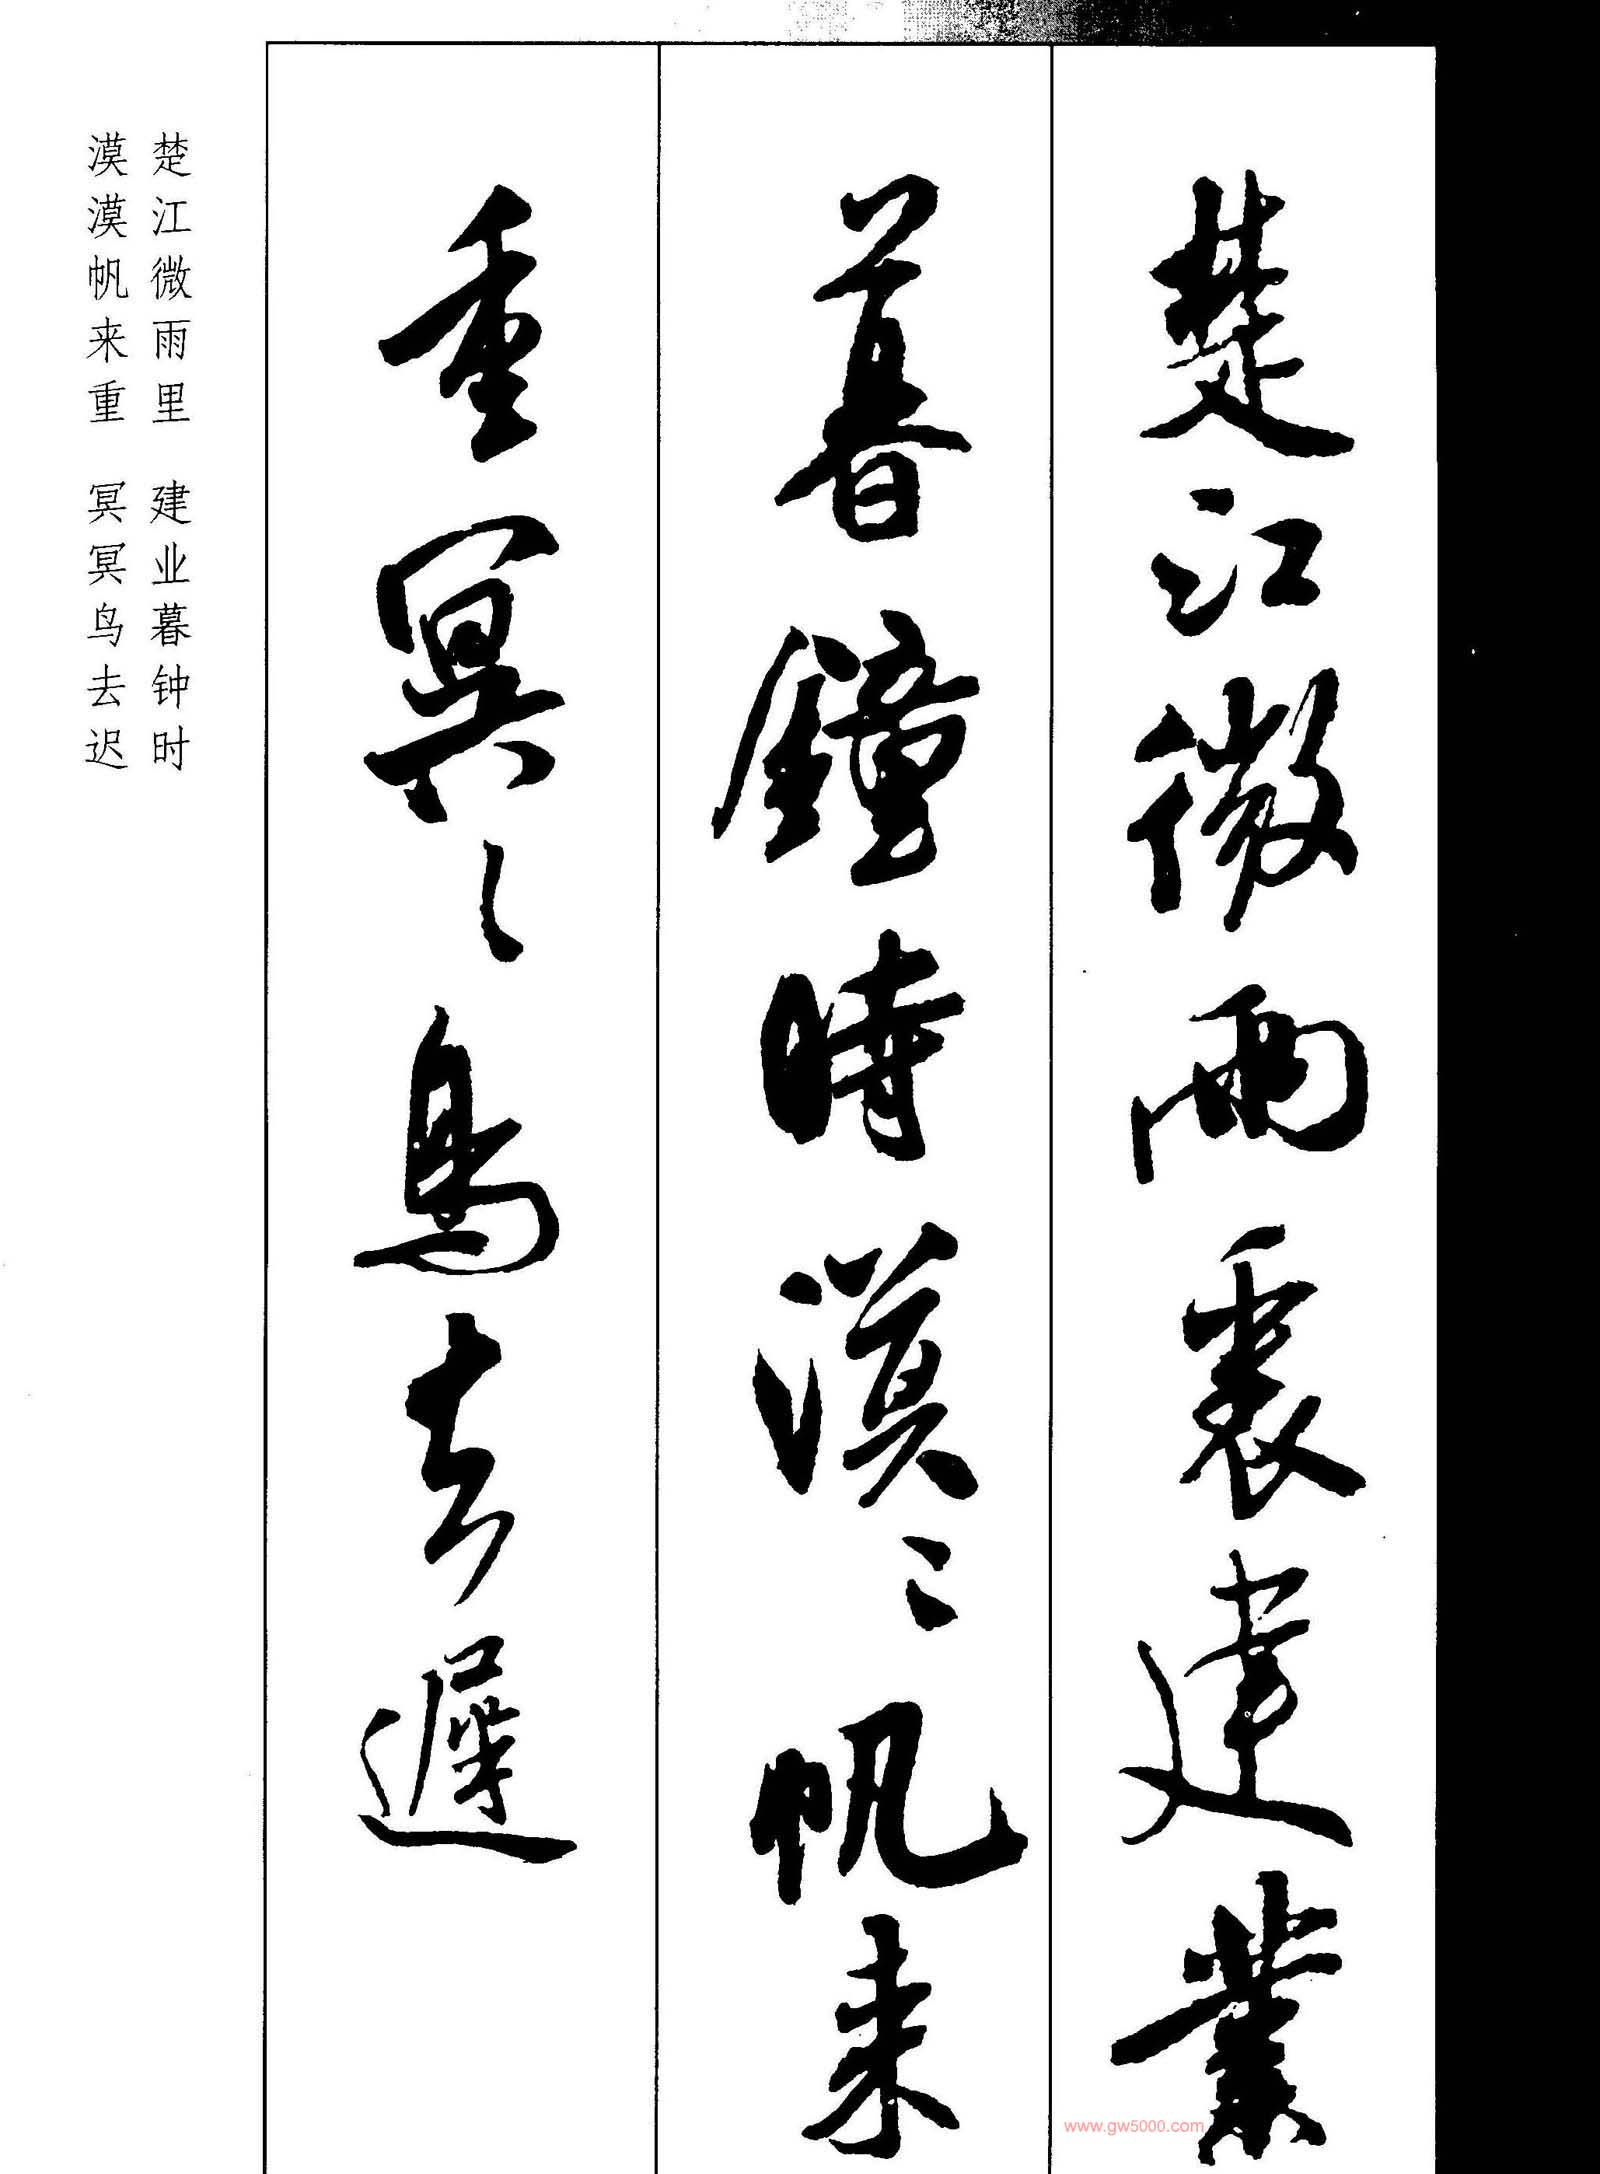 楚江微雨裏建業
暮鐘時漠〻帆来
重冥〻鳥去遲
楚江微雨里 建业暮钟时
漠漠帆来重 冥冥鸟去迟
www.gw5000.com